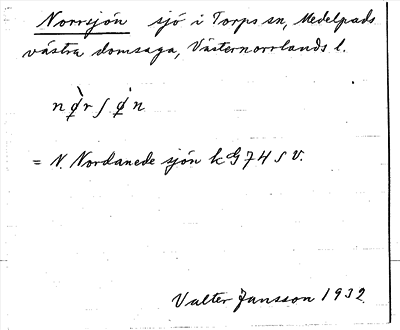 Norrsjön sjö i Torps sn, Medelpads
västra domsaga, Västernorrlands l.
nø̀rʃǿn
= N. Nordanede sjön kG74SV.
Valter Jansson 1932